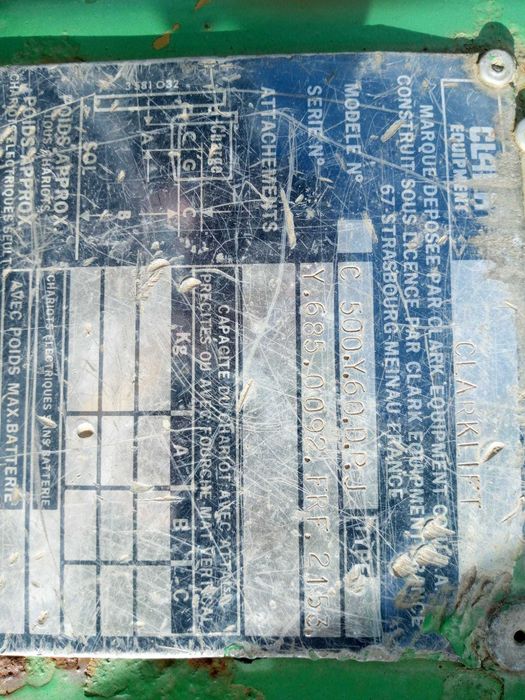 CLARK
EQUIPMENT
CLARKLIFT
MARQUE DEPOSEE PAR CLARK EQUIPMENT
CONSTRUIT SOUS LICENCE PAR CLARK EQUIPMENT
67 STRASBOURG MEINAU FRANCE
MODELE N° C 500.Y60.D.P.J TYPE
SERIE N° Y.685.0092.FRF.2153.
ATTACHEMENTS
CAPACITE DU CHARIOT AVEC
PRECITES OU AVEC FOURCHE MAT VERTICAL
Charge
C G
Kg A B C
A
C
B
3581 032
SOL
POIDS APPROX.
CHARIOTS ELECTRIQUES SANS BATTERIE
POIDS APPROX.
CHARIOTS ELECTRIQUES SEULT
AVEC POIDS MAX. BATTERIE